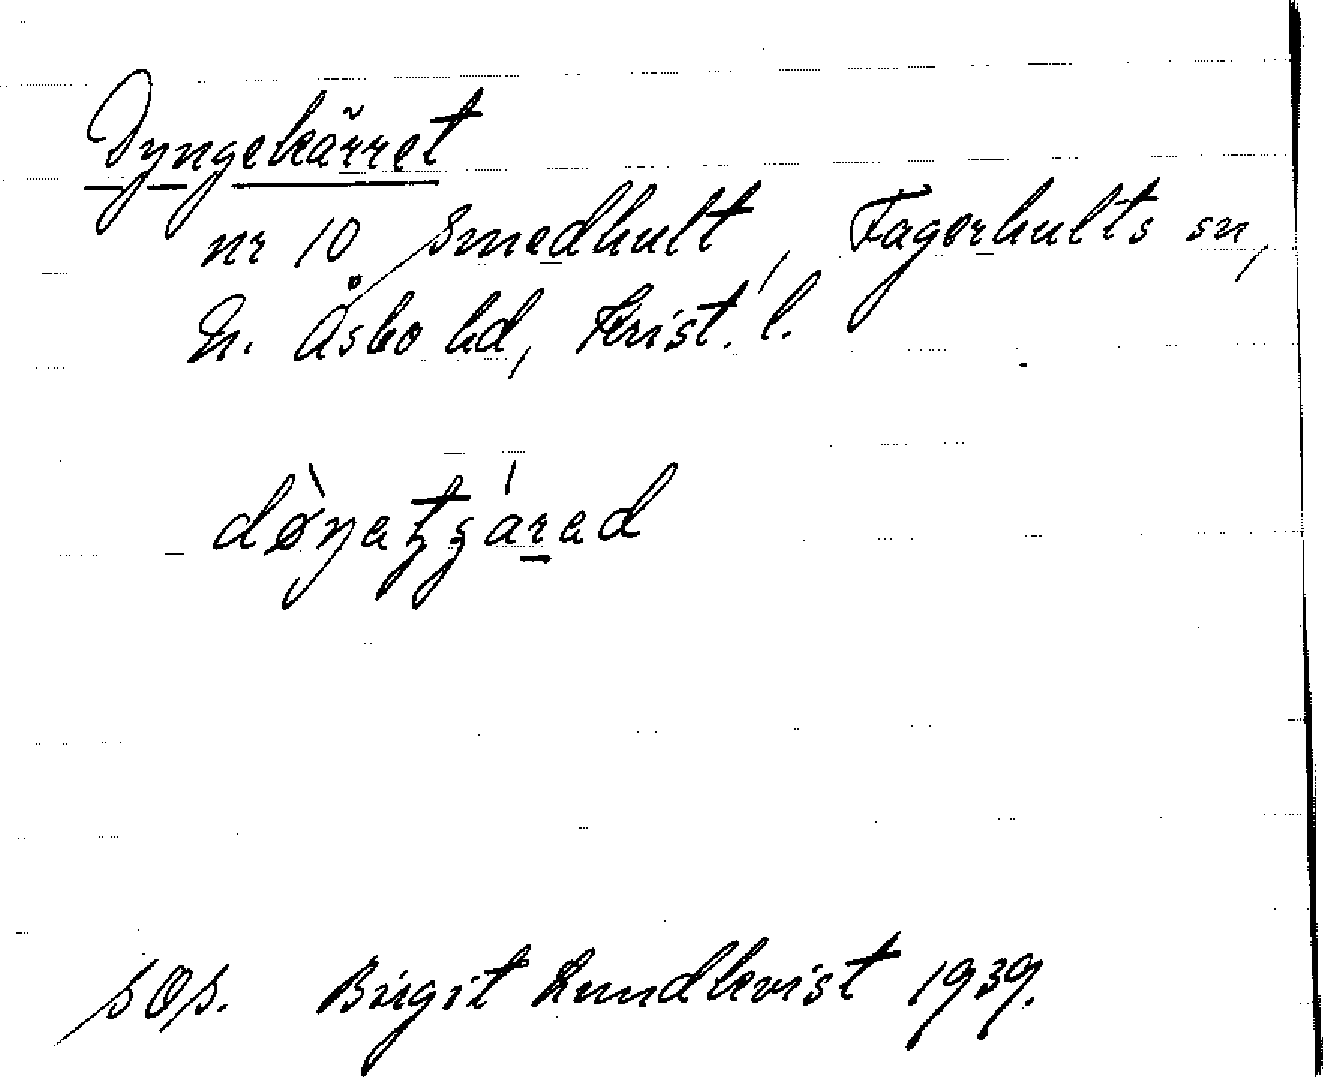 Dyngekärret
nr 10 Smedhult, Fagerhults sn,
N. Åsbo hd, Krist. l.
sOs. Birgit Lundkvist 1939.